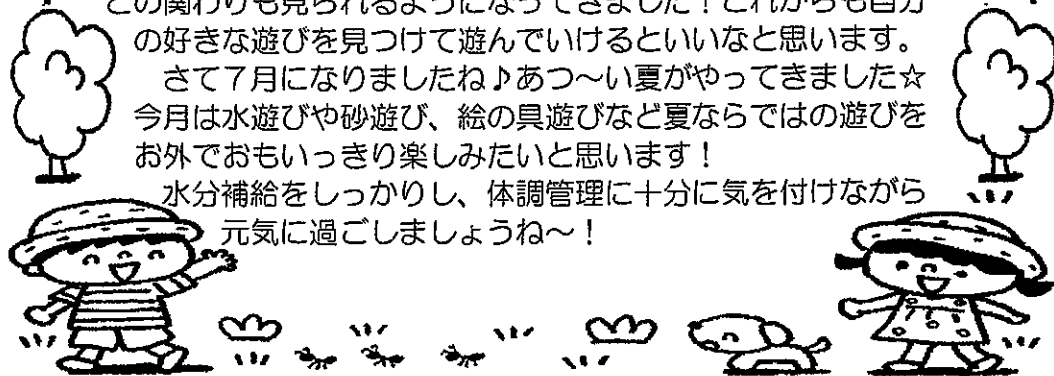 との関わりも見られるようになってきました！これからも自分
の好きな遊びを見つけて遊んでいけるといいなと思います。
さて７月になりましたね♪あつ～い夏がやってきました☆
今月は水遊びや砂遊び、絵の具遊びなど夏ならではの遊びを
お外でおもいっきり楽しみたいと思います！
水分補給をしっかりし、体調管理に十分に気を付けながら
元気に過ごしましょうね～！